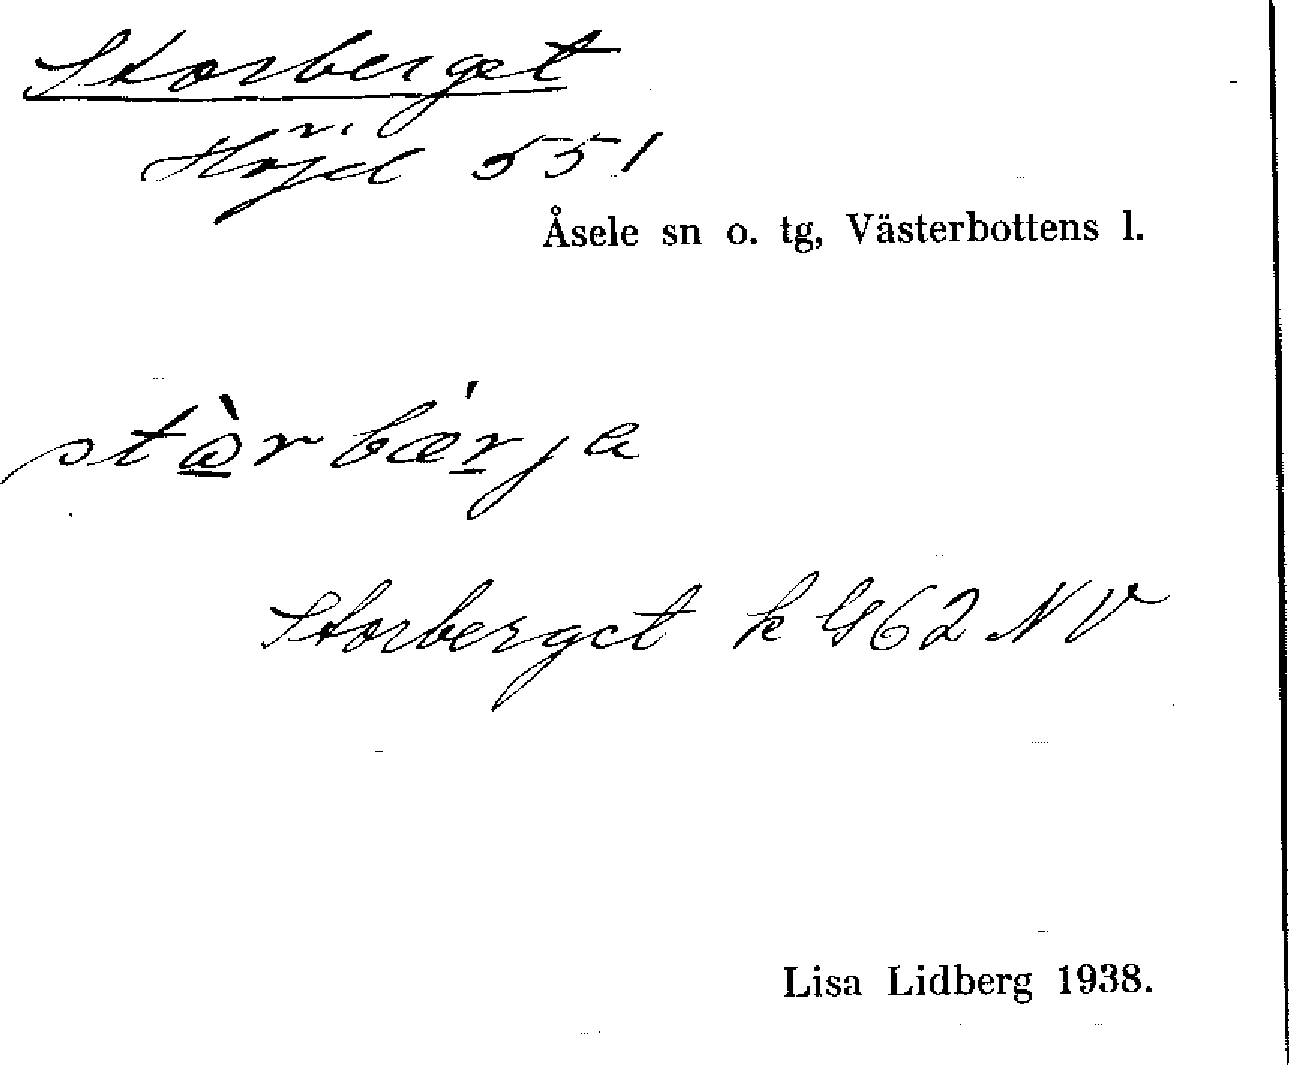 Storberget
Höjd 551
Åsele sn o. tg, Västerbottens l.
stə̀rbǽrja
Storberget k G62 NV
Lisa Lidberg 1938.